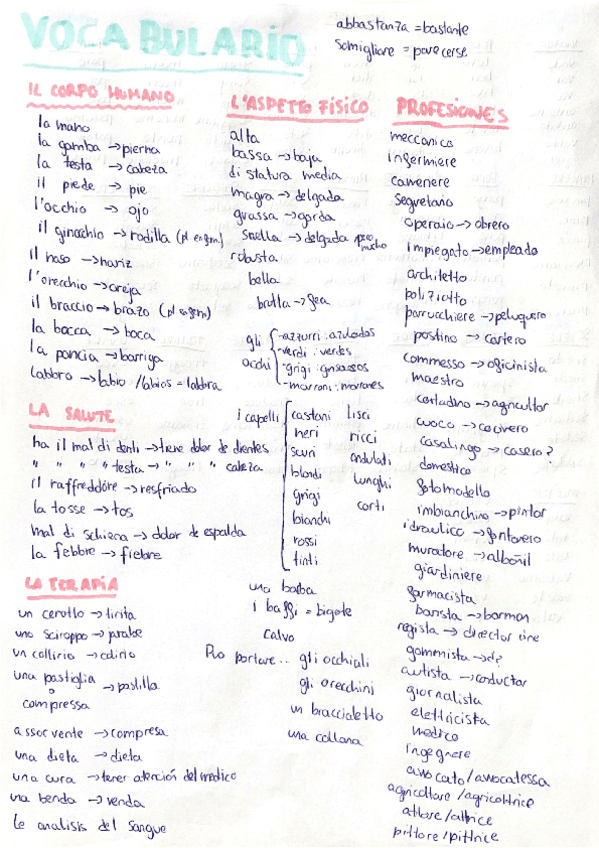 VOCABULARIO
abbastanza = bastante
somigliare = parecerse
IL CORPO HUMANO
la mano
la gamba → pierna
la testa → cabeza
il piede → pie
l'occhio → ojo
il ginocchio → rodilla (pl en fem)
il naso → nariz
l'orecchio → oreja
il braccio → brazo (pl en fem)
la bocca → boca
la pancia → barriga
labbro → labio / labios = labbra
LA SALUTE
ha il mal di denti → tiene dolor de dientes
" " " " testa → " " " cabeza
il raffreddóre → resfriado
la tosse → tos
mal di schiena → dolor de espalda
la febbre → fiebre
LA TERAPIA
un cerotto → tirita
uno sciroppo → jarabe
un collirio → colirio
una pastiglia → pastilla
o
compressa
assorvente → compresa
una dieta → dieta
una cura → tener atención del medico
una benda → venda
Le analisis del sangue
L'ASPETTO FISICO
alta
bassa → baja
di statura media
magra → delgada
grassa → gorda
snella → delgada pero mucho
robusta
bella
brutta → fea
gli occhi
- azzurri: azulados
- verdi: verdes
- grigi: grisaceos
- marroni: marrones
i capelli
castani lisci
neri ricci
scuri ondulati
biondi lunghi
grigi corti
bianchi
rossi
tinti
una barba
i baffi = bigote
calvo
Può portare... gli occhiali
gli orecchini
un braccialetto
una collana
PROFESIONES
meccanico
infermiere
camenere
Segretario
operaio → obrero
impiegato → empleado
architetto
poliziotto
parrucchiere → peluquero
postino → cartero
commesso → oficinista
maestro
contadino → agricultor
cuoco → cocinero
casalingo → casero?
domestico
fotomodello
imbianchino → pintor
idraulico → fontanero
muratore → albañil
giardiniere
farmacista
barista → barman
regista → director cine
gommista → d?
autista → conductor
giornalista
elettricista
medico
ingegnere
avvocato / avvocatessa
agricoltore / agricoltrice
attore / attrice
pittore / pittrice